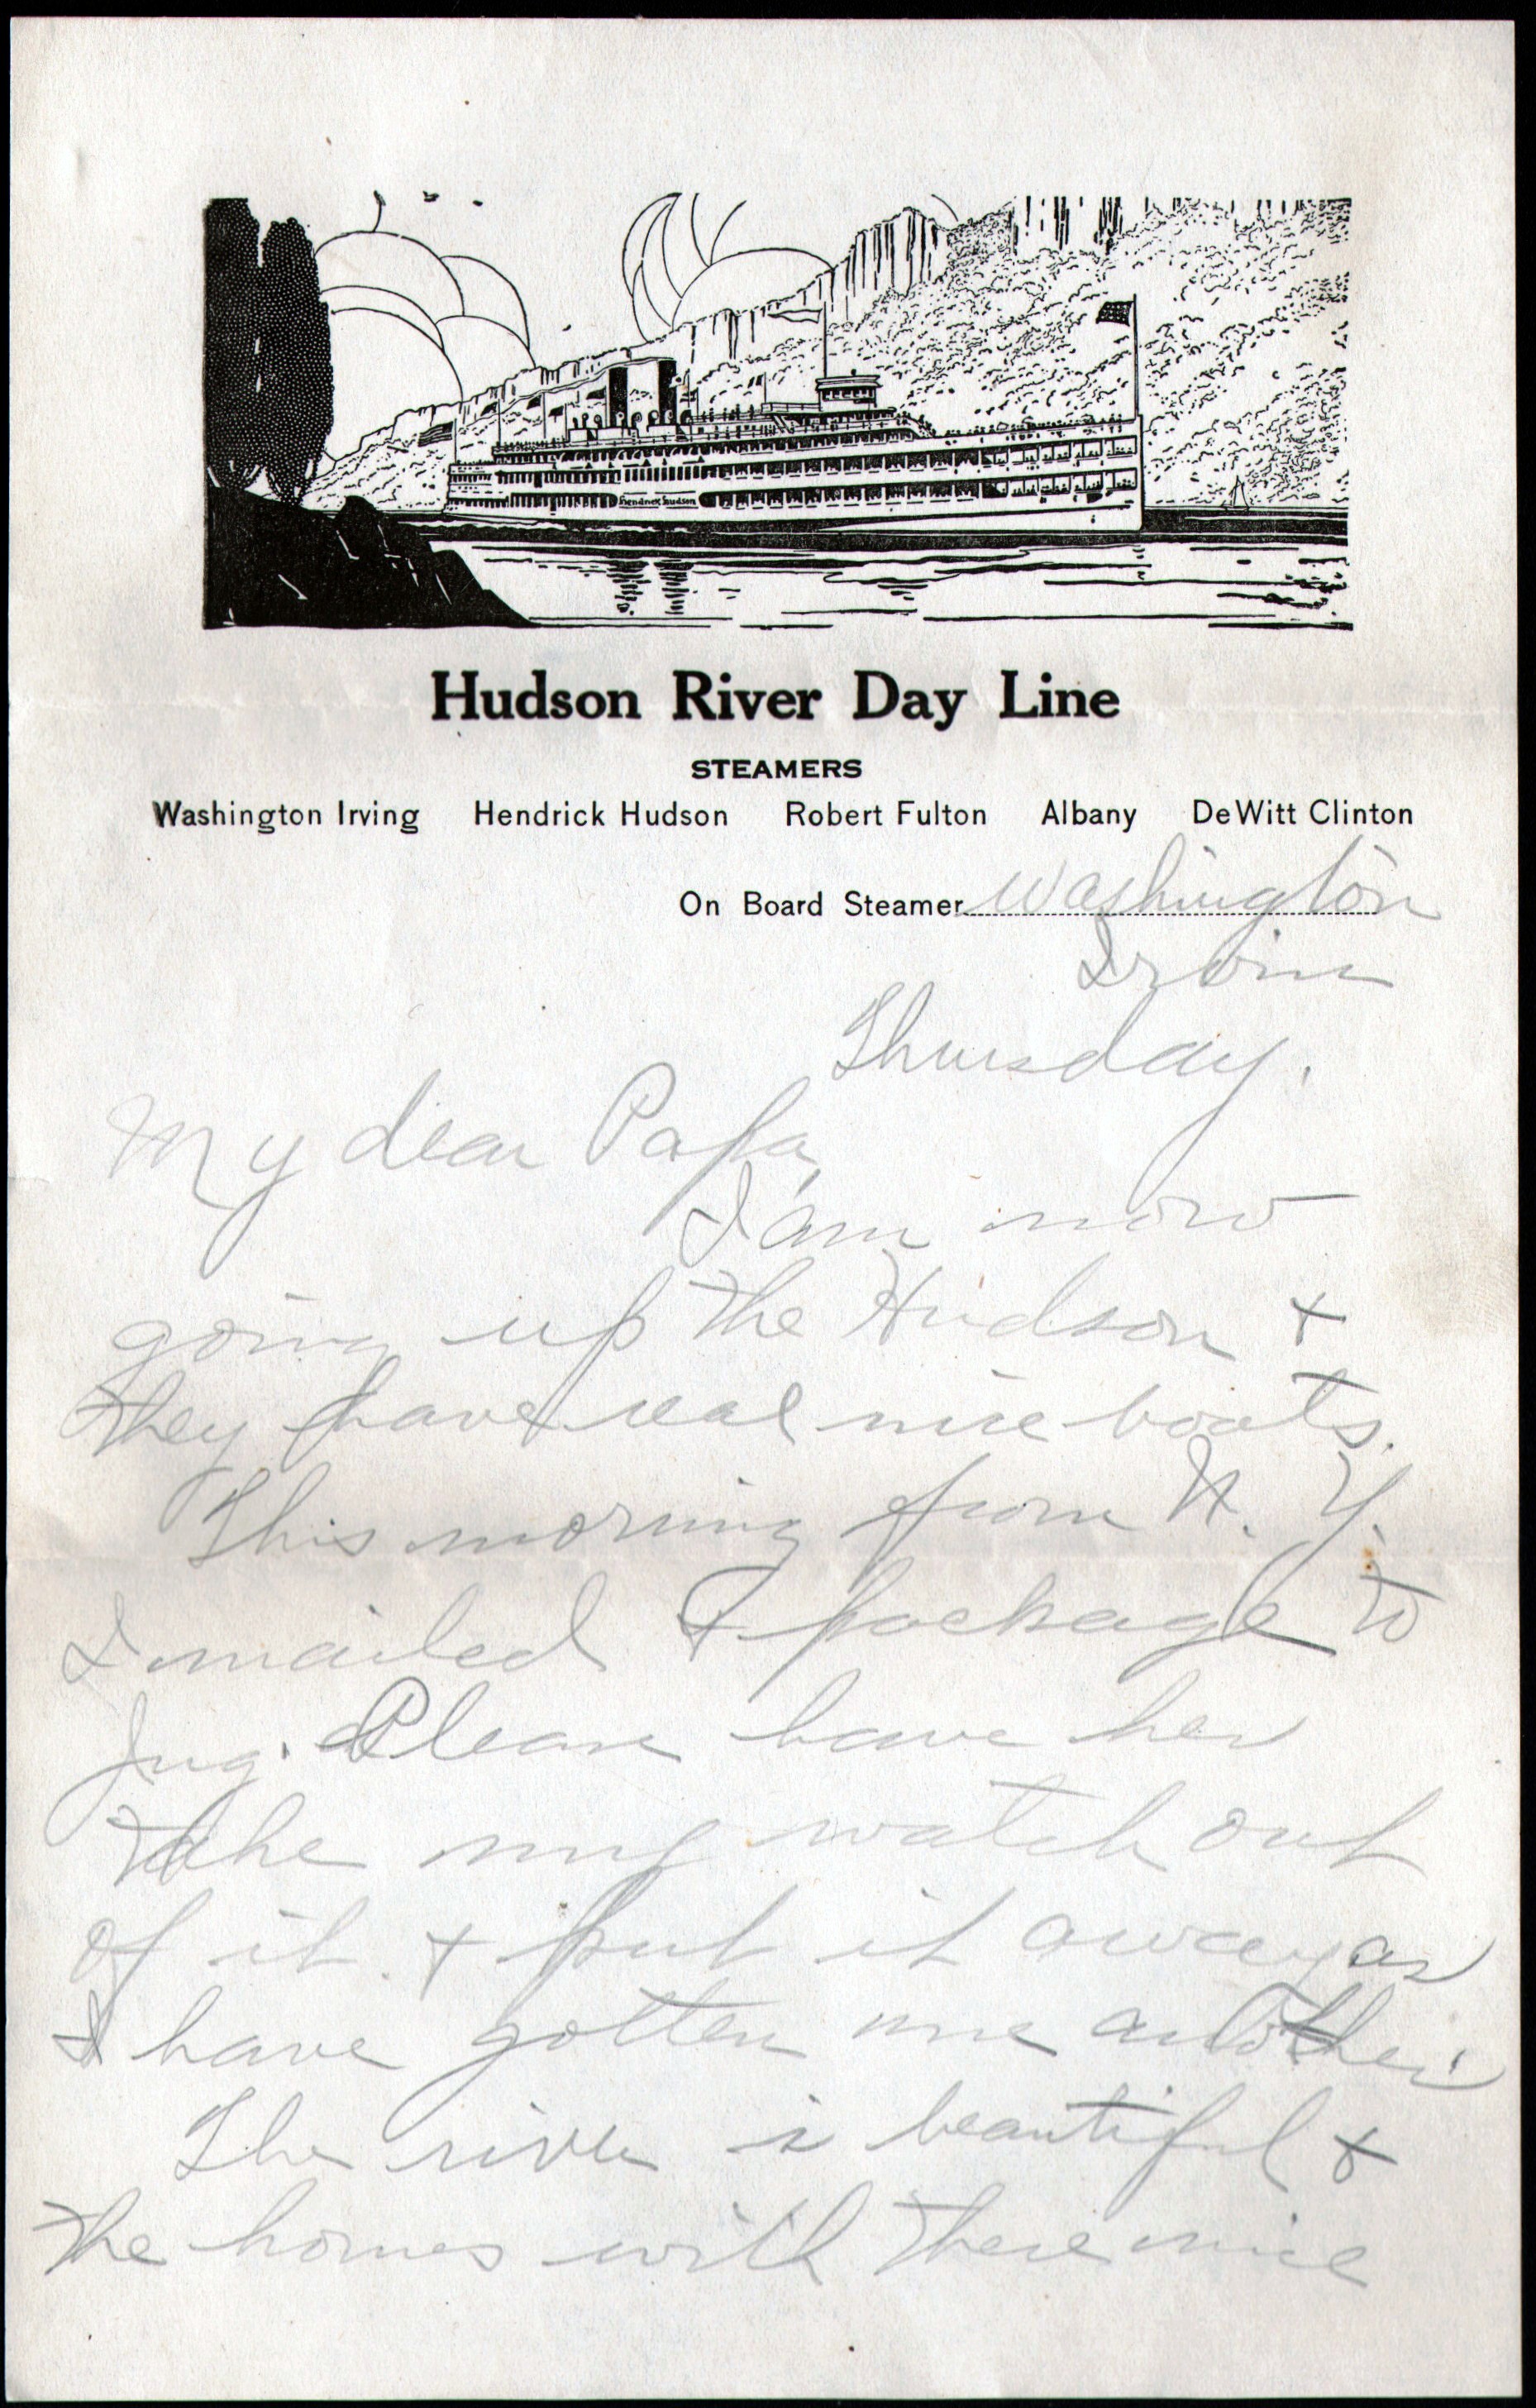 Hendrick Hudson
Hudson River Day Line
STEAMERS
Washington Irving Hendrick Hudson Robert Fulton Albany DeWitt Clinton
On Board Steamer Washington
Irvin
Thursday.
My dear Papa,
I am now
going up the Hudson +
they have real nice boats.
This morning from N. Y.
I mailed a package to
Jug. Please have her
take my watch out
of it. + put it away as
I have gotten me another.
The river is beautiful +
the homes with there nice